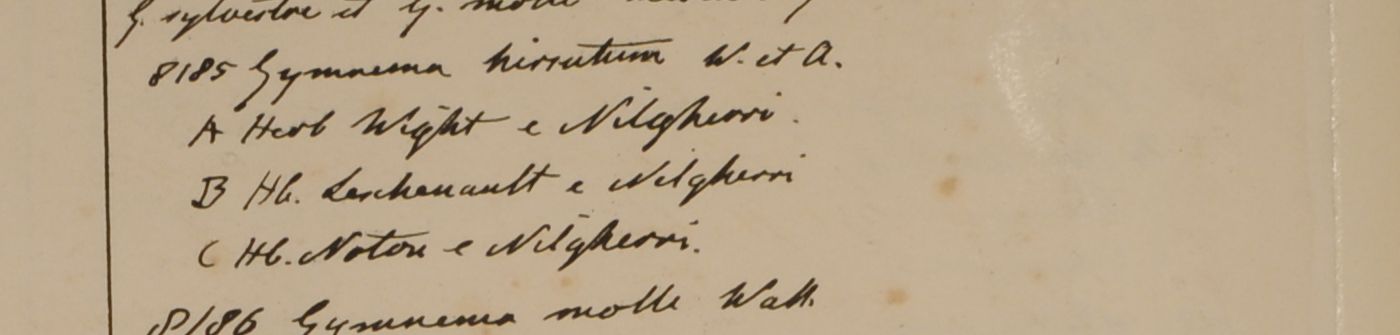 G. sylvestre et G. molle
8185 Gymnema hirsutum W. et A.
A Herb Wight e Nilgherri.
B Hb. Leschenault e Nilgherri
C Hb. Noton e Nilgherri.
8186 Gymnema molle Wall.